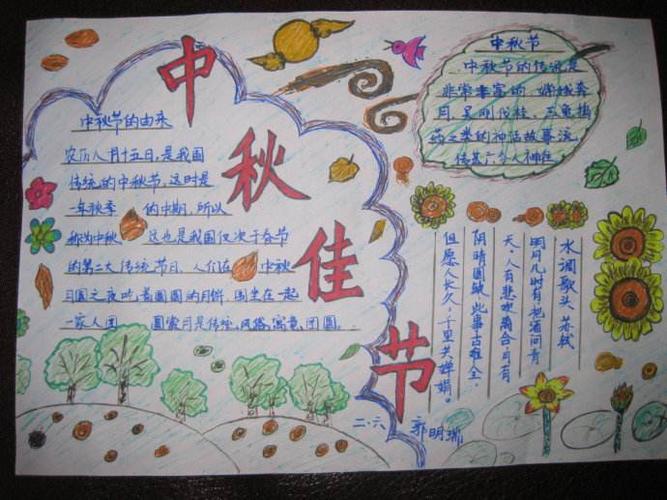 中秋佳节
中秋节的由来
农历八月十五日,是我国
传统的中秋节,这时是
一年秋季 的中期,所以
称为中秋 这也是我国仅次于春节
的第二大传统节日,人们在 中秋
月圆之夜吃着圆圆的月饼,围坐在一起
一家人团 圆赏月是传统风俗,寓意,团圆。
中秋节
中秋节的传说是
非常丰富的,嫦娥奔
月,吴刚伐桂,玉兔捣
药之类的神话故事流
传甚广
水调歌头 苏轼
明月几时有把酒问青
天,人有悲欢离合月有
阴晴圆缺,此事古难全。
但愿人长久,千里共婵娟。
二·六 郭明瑞